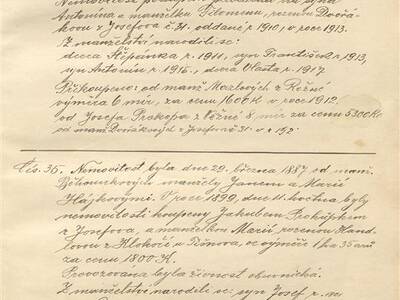 Antonína a manželku Filomenu, rozenu Dvořá-
kovu z Josefova č. 31. oddané r. 1910 v roce 1913.
Z manželství narodili se:
dcera Štěpánka r. 1911, syn František r. 1913,
syn Antonín r. 1915, dcera Vlasta r. 1917.
Přikoupeno: od manž. z Rožné
výměra 6 mír, za cenu 1600 K v roce 1912.
od Josefa Prokopa z Rožné 8 mír za cenu 5300 K
od manž. Dvořákových z Josefova 31.
Čís. 36. Nemovitost byla dne 29. března 1887 od manž.
manžely Janem a Marií
Hájkovými. V roce 1899, dne 11. května byly
nemovitosti koupeny Jakubem Prokůpkem
z Josefova, a manželkou Marií, rozenou
z Klokočí u Tišnova, ve výměře 1 ha 35 arů
za cenu 1800 K.
Provozována byla živnost obuvnická.
Z manželství narodili se: syn Josef r.